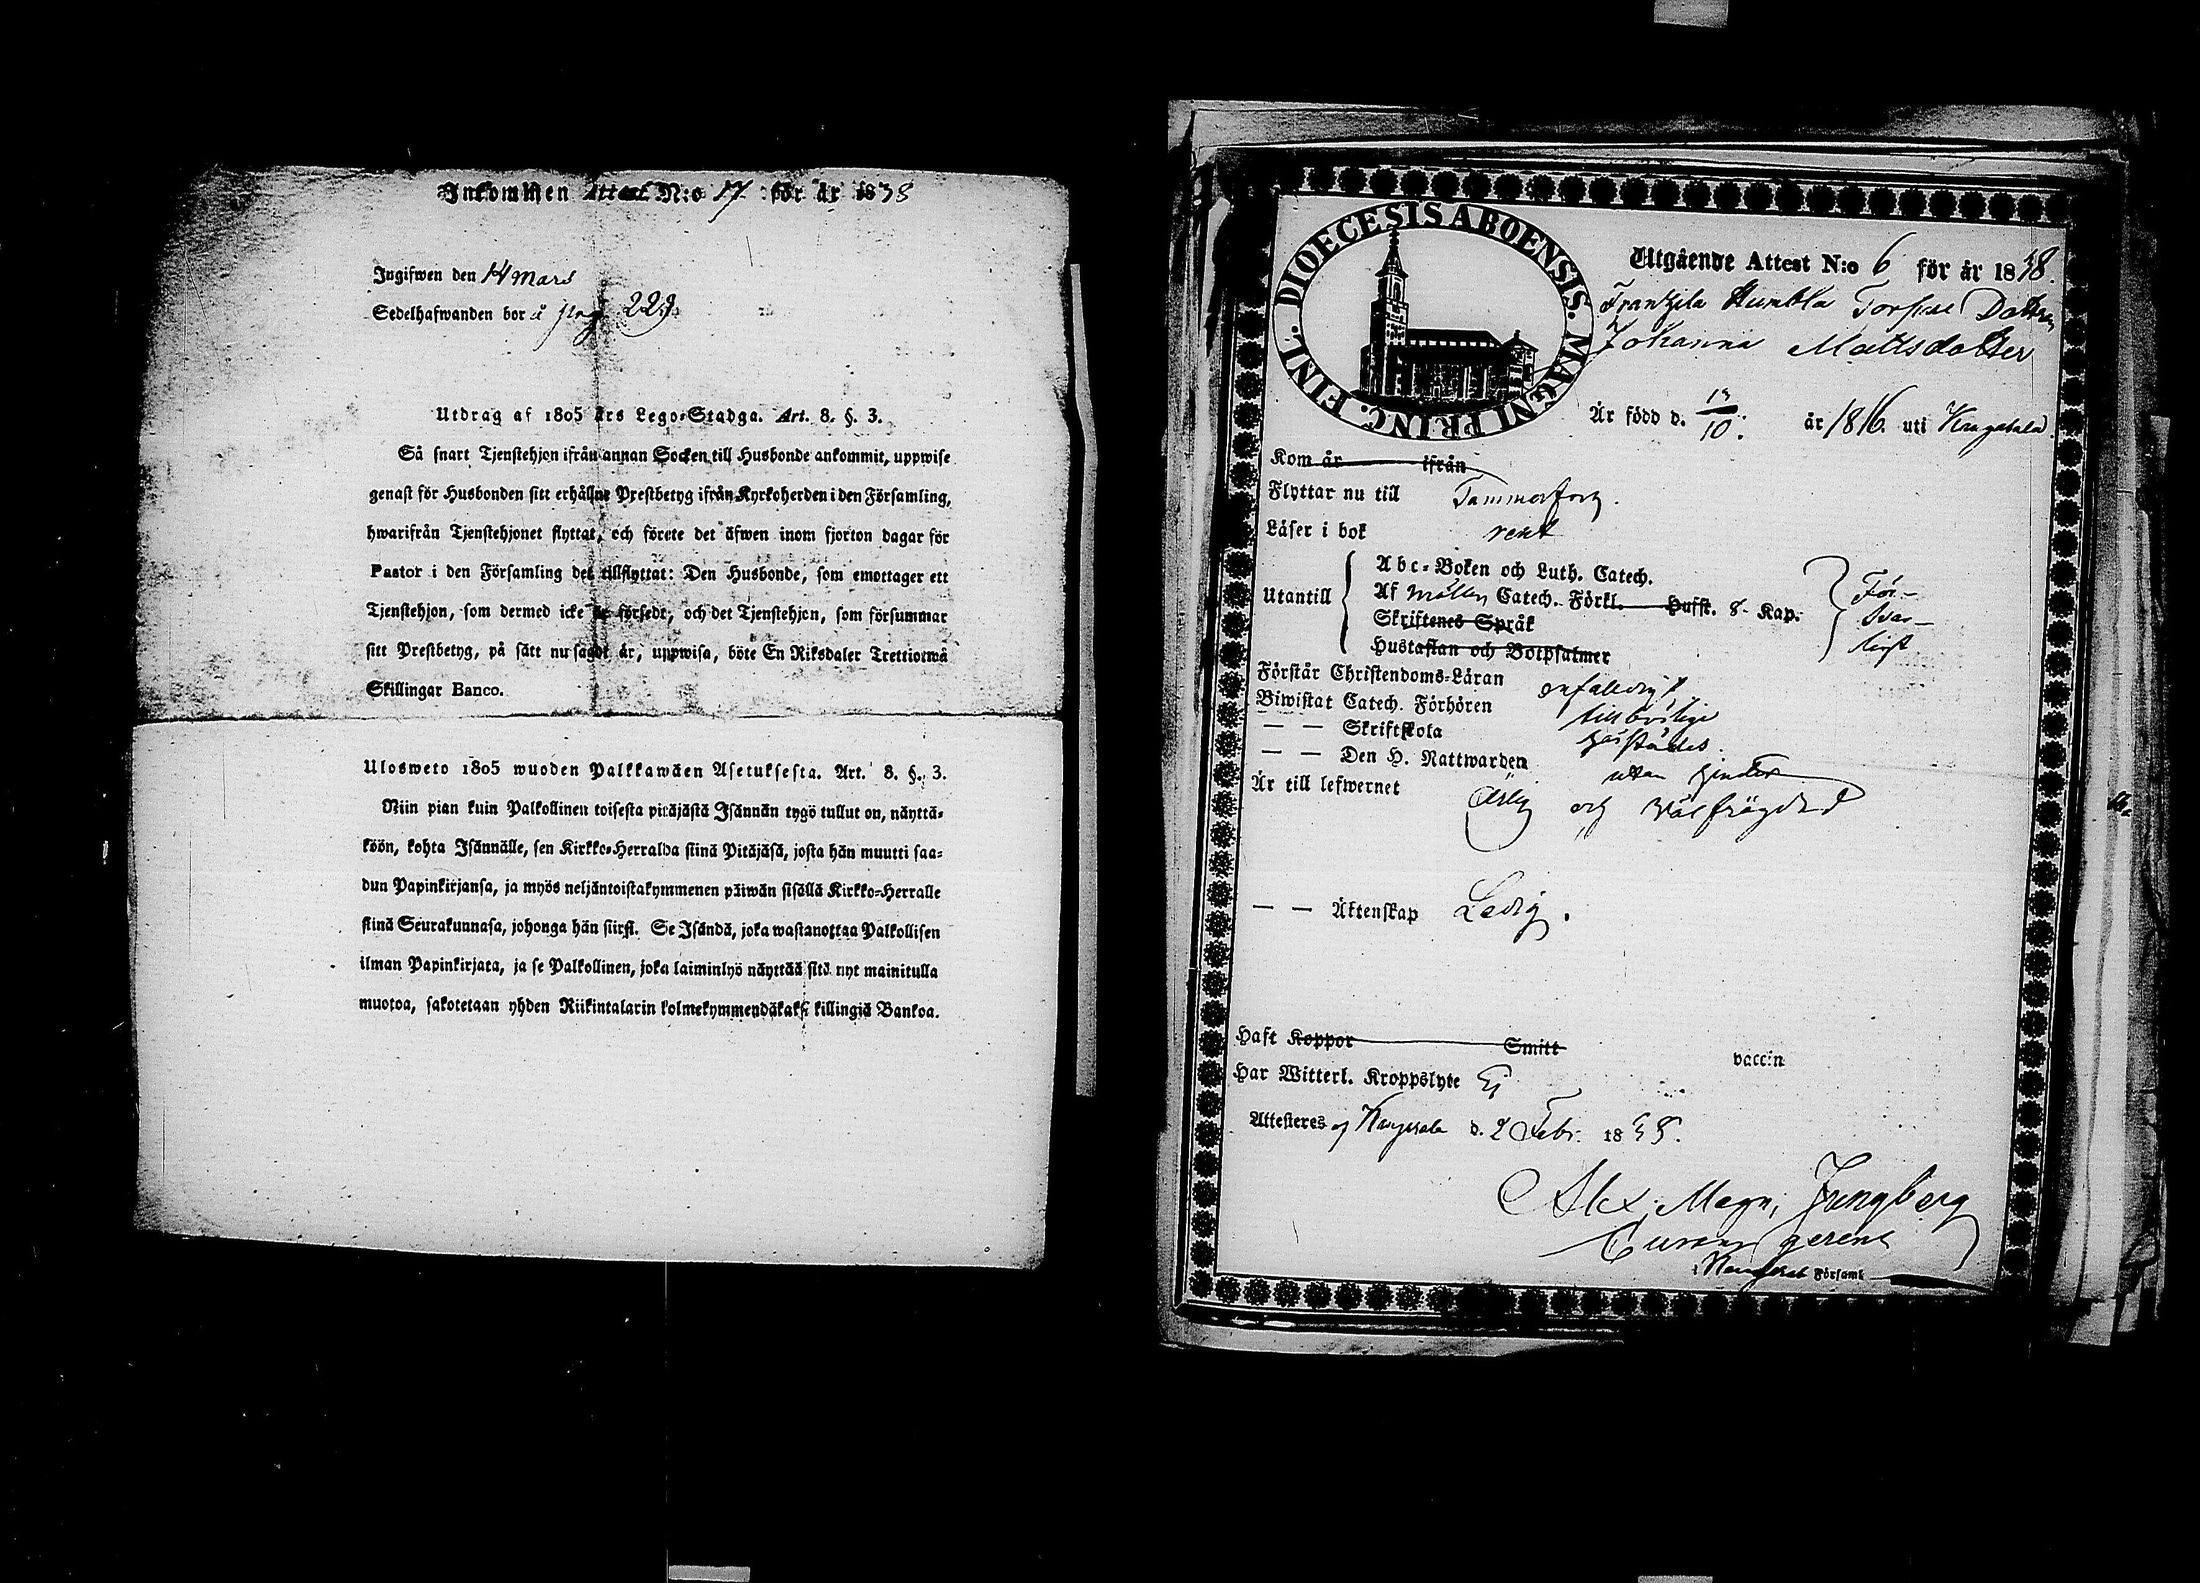 Inkommen Attest N:o 17 för år 1838
Ingifwen den 14 mars
Sedelhafwanden bor å pag 229
Utdrag af 1805 års Lego-Stadga. Art. 8. §. 3.
Så snart Tjenstehjon ifrån annan Socken till Husbonde ankommit, uppwise
genast för Husbonden sitt erhållne Prestbetyg ifrån Kyrkoherden i den Församling,
hwarifrån Tjenstehjonet flyttat, och förete det äfwen inom fjorton dagar för
Pastor i den Församling det tillflyttat: Den Husbonde, som emottager ett
Tjenstehjon, som dermed icke är försedt, och det Tjenstehjon, som försummar
sitt Prestbetyg, på sätt nu sagdt är, uppwisa, böte En Riksdaler Trettiotwå
Skillingar Banco.
Ulosweto 1805 wuoden Palkkawäen Asetuksesta. Art. 8. §. 3.
Niin pian kuin Palkollinen toisesta pitäjästä Isännän tygö tullut on, näyttä-
köön, kohta Isännälle, sen Kirkko-Herralda siinä Pitäjäsä, josta hän muutti saa-
dun Papinkirjansa, ja myös neljäntoistakymmenen päiwän sisällä Kirkko-Herralle
siinä Seurakunnasa, johonga hän siirsi. Se Isändä, joka wastanottaa Palkollisen
ilman Papinkirjata, ja se Palkollinen, joka laiminlyö näyttää sitä nyt mainitulla
muotoa, sakotetaan yhden Riikintalarin kolmekymmendäkaksi killingiä Bankoa.
DIOECESIS ABOENSIS. MAGNI PRINC. FINL.
Utgående Attest N:o 6 för år 1838.
Frantzila Humbla Torpare Dottren
Johanna Mattsdotter
Är född d. 13/10. år 1816. uti Kangasala
Kom år ifrån
Flyttar nu till Tammerfors.
Läser i bok rent
Utantill
Abc-Boken och Luth. Catech.
Af Möllers Catech. Förkl. Hufst. 8 Kap.
Skriftenes Språk
Hustaflan och Botpsalmer
För-
svar-
ligt
Förstår Christendoms-Läran enfaldigt
Biwistat Catech. Förhören tillbörligt
— — Skriftskola
— — Den H. Nattwarden utan hinder
Är till lefwernet Ärlig och Välfrägdad
— — Äktenskap Ledig.
Haft Koppor Smitt vaccin
Har Witterl. Kroppslyte Ej
Attesteres af Kangasala d. 2 Febr. 1838.
Alex: Magn: Ljungberg
Curam gerens
i Kangasala Församl